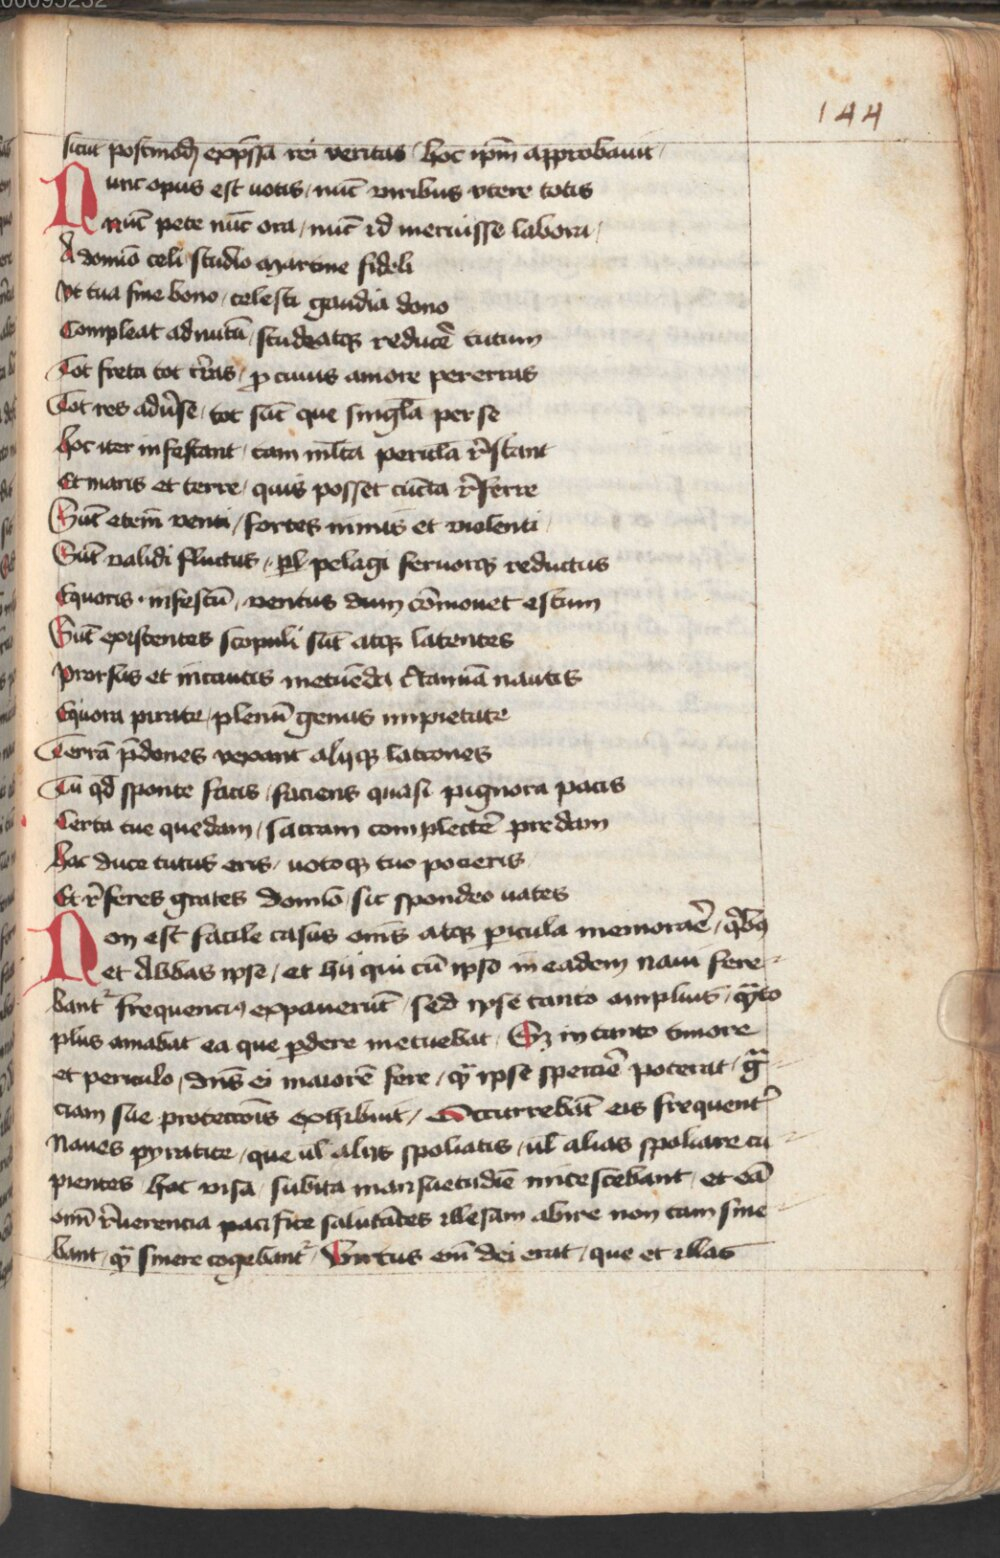 00095252
144
sicut postmodū exp̄ssa rei veritas / hoc ip̄m approbauit /
Nunc opus est uotis / nūc viribus vtere totis
nūc pete nūc ora / nūc id meruisse labora /
A domīo celi studio martine fideli
vt tua sine bono / celesti gaudia dono
Compleat ad nutū / studeatqꝫ reducē tutum
Tot freta tot t̄ras / ꝑ cuius amore pererras
Tot res adūse / tot sūt que singl̄a per se
hoc iter infestant / tam ml̄ta pericl̄a r̄stant
Et maris et terre / quis posset cūcta r̄ferre
Sūt etem̄ venti / fortes nimis et violenti
Sūt validi fluctus / pelagi feruorqꝫ reductus
Equoris infestū / ventus dum cōmouet estum
Sūt existentes scopuli sūt atqꝫ latentes
Prorsus et incautis metuēda nautis
Equora pirate / plenū genus impietate
Terrā p̄dones vexant alijqꝫ latrones
Tu qd̄ sponte scitis / faciens quasi pignora pacis
Certa tue quedam / sacram complectē predam
hac duce tutus eris / uotoqꝫ tuo pocieris
Et r̄feres grates domīo / sic spondeo uates
Non est facile casus om̄s atqꝫ ꝑicula memorar̄e / qͥbꝫ
et Abbas ipse / et hij qui cū ipso in eadem naui fere-
bant᷑ frequencius expauerūt / sed ipse tanto amplius / qͣ̄to
plus amabat ea que ꝑdere metuebat / Sꝫ in tanto timore
et periculo / dn̄s ei maiorē fere / qͣ̄ ipse sperar̄e poterat / gr̄a-
ciam sue proteccōis exhibuit / Occurrebāt eis frequent᷑
Naues pyratice / que ul̄ alijs spoliatis / ul̄ alias spoliare cu-
pientes / hac visa / subita mansuetudīe mitescebant / et eā
om̄i r̄uerencia pacifice salutātes illesam abire non tam sine-
bant / qͣ̄ sinere cogebant᷑ / Virtus em̄ dei erat / que et illas